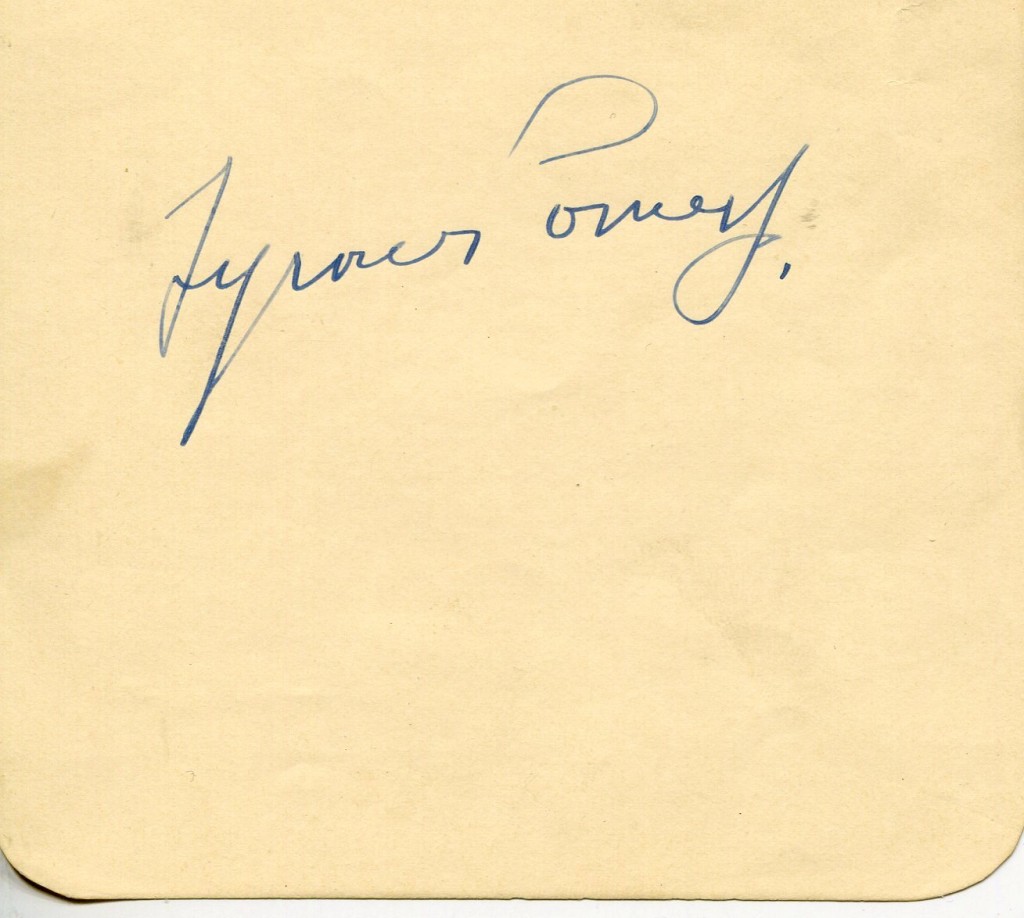 Tyrone Power.